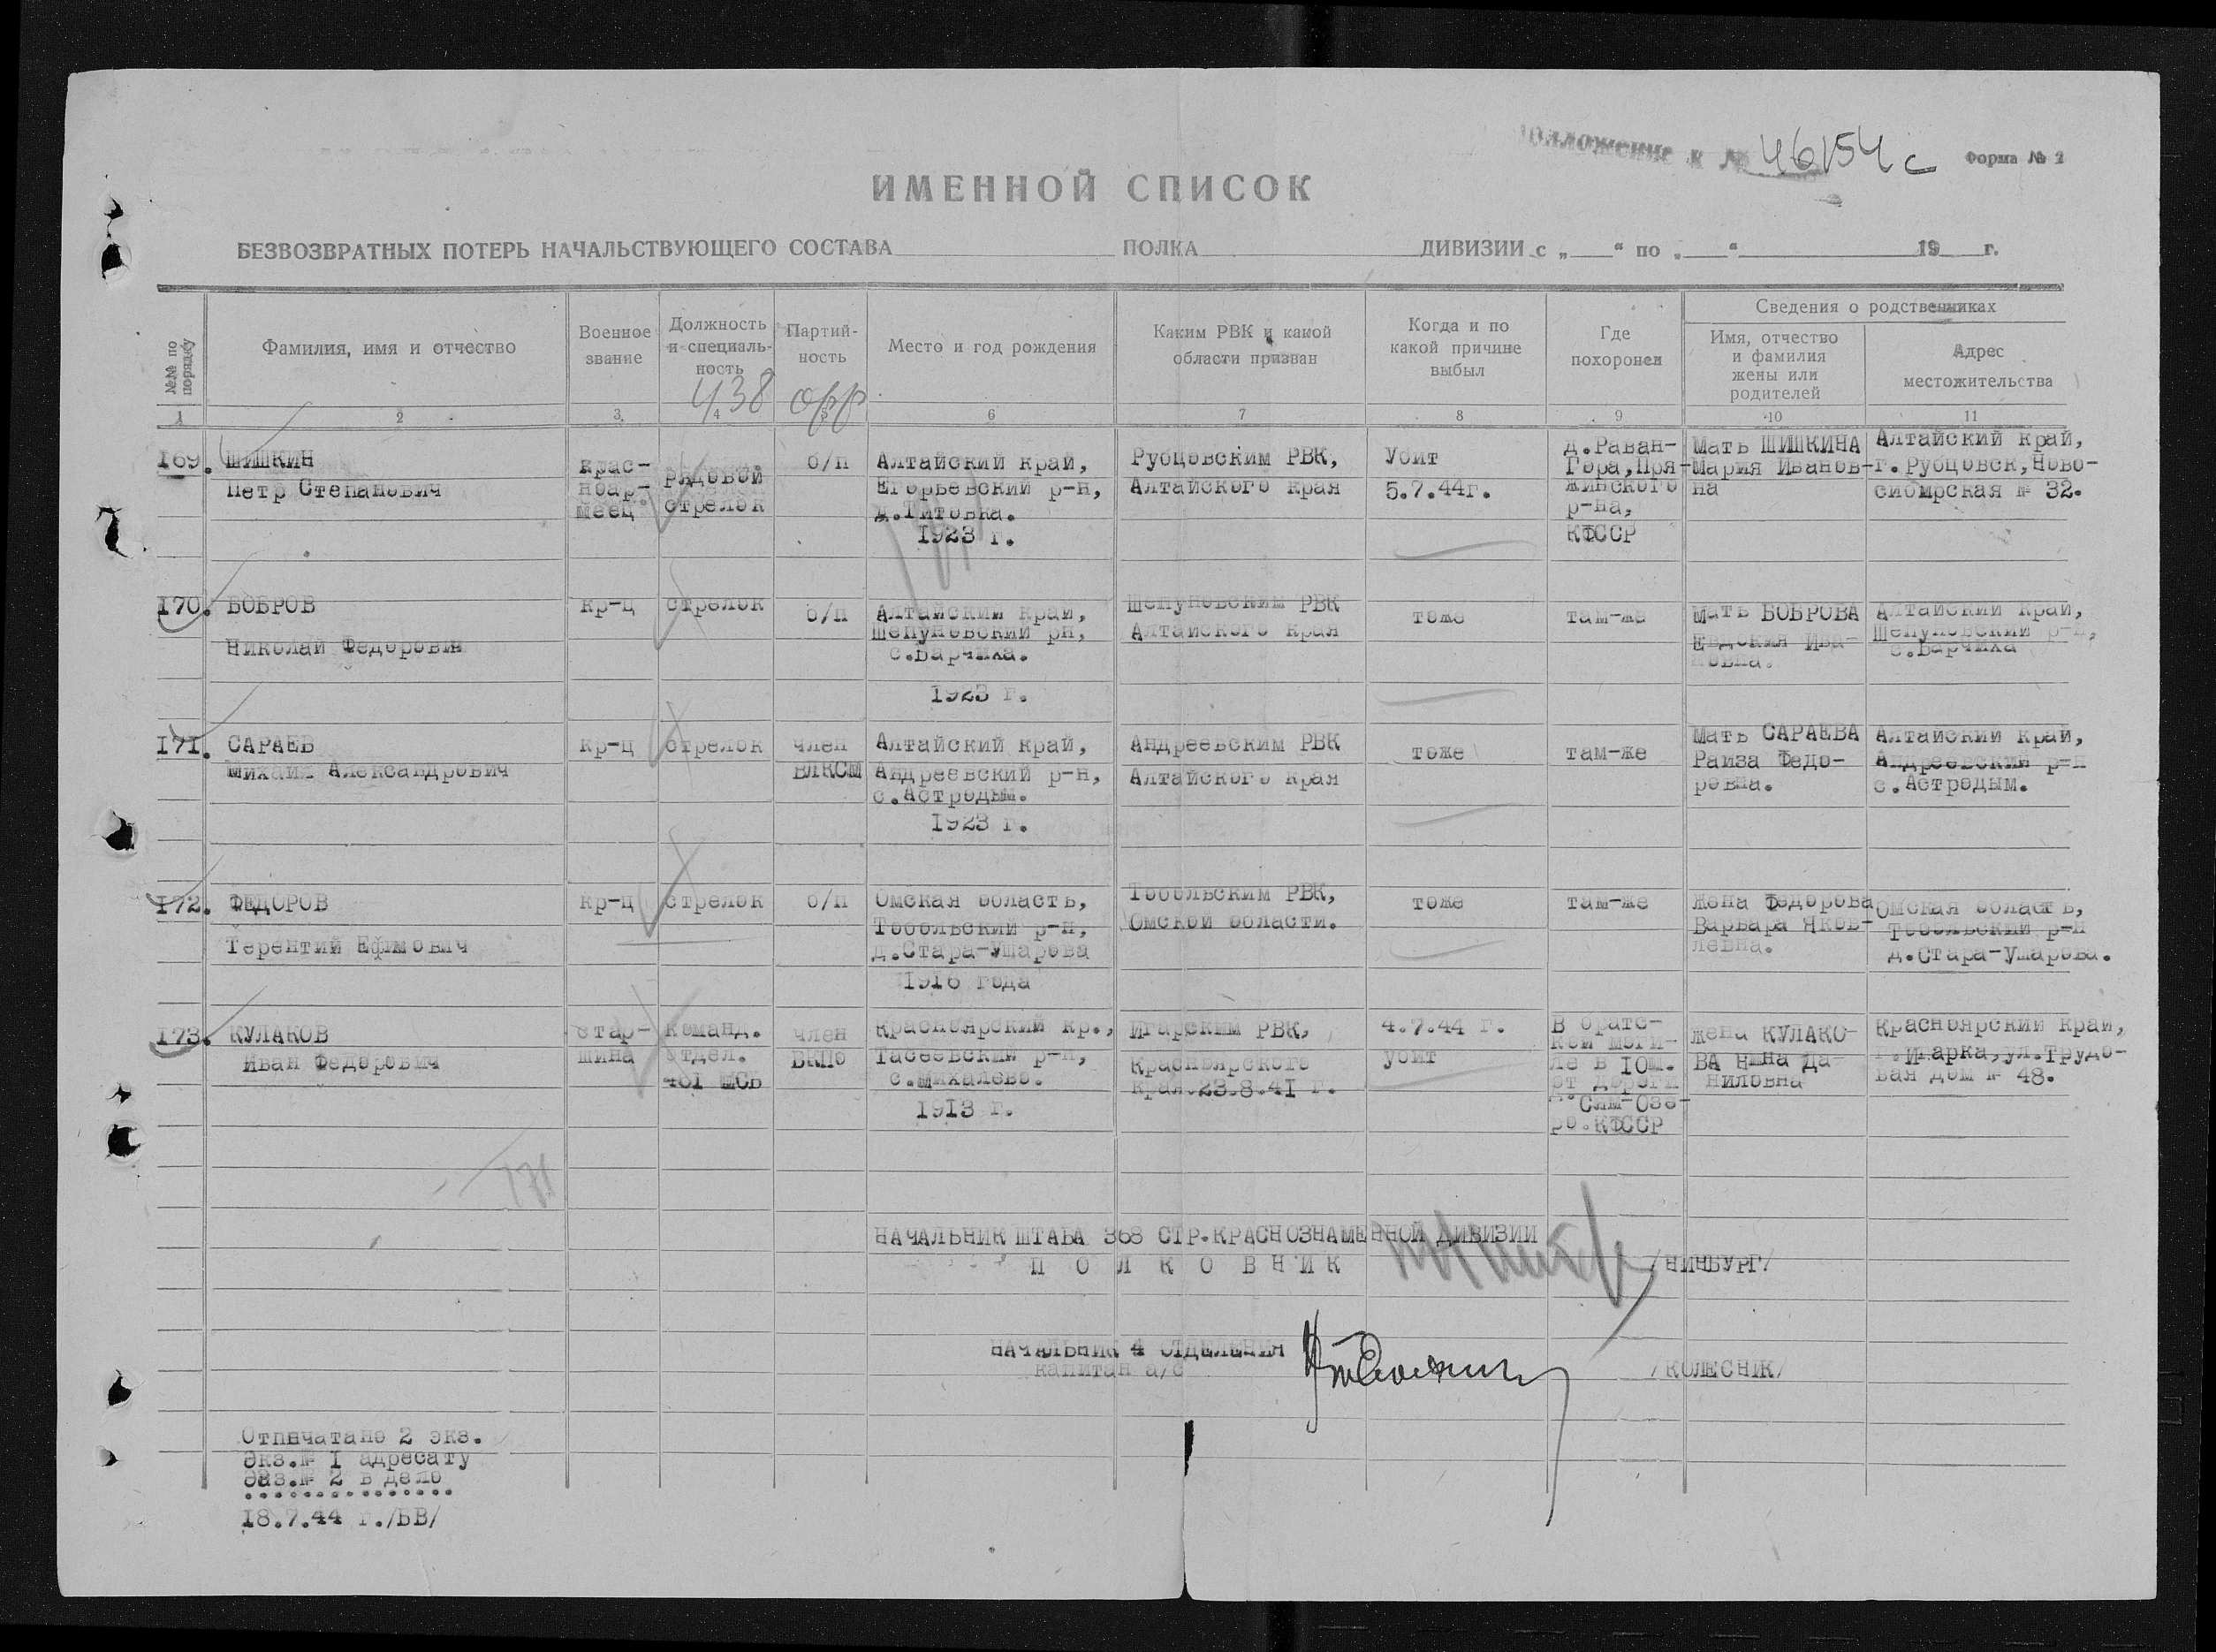 к № 46154 с
Форма № 2
ИМЕННОЙ СПИСОК
БЕЗВОЗВРАТНЫХ ПОТЕРЬ НАЧАЛЬСТВУЮЩЕГО СОСТАВА ПОЛКА ДИВИЗИИ с „ “ по „ “ 19 г.
№№ по порядку
Фамилия, имя и отчество
Военное звание
Должность и специальность
Партийность
Место и год рождения
Каким РВК и какой области призван
Когда и по какой причине выбыл
Где похоронен
Сведения о родственниках
Имя, отчество и фамилия жены или родителей
Адрес местожительства
438
1 2 3 4 5 6 7 8 9 10 11
169. ШИШКИН
Петр Степанович
Крас-
ноар-
меец
рядовой
стрелок
б/п
Алтайский край,
Егорьевский р-н,
д.Титовка.
1923 г.
Рубцовским РВК,
Алтайского края
Убит
5.7.44г.
д.Раван-
Гора,Пря-
жинского
р-на,
КФССР
Мать ШИШКИНА
Мария Иванов-
на
Алтайский край,
г.Рубцовск,Ново-
сибирская № 32.
170. БОБРОВ
Николай Федорович
кр-ц
стрелок
б/п
Алтайский край,
Шепуновский рн,
с.Варчиха.
1923 г.
Шепуновским РВК
Алтайского края
тоже
там-же
Мать БОБРОВА
Евдокия Ива-
новна.
Алтайский край,
Шепуновский р-н,
с.Варчиха
171. САРАЕВ
Михаил Александрович
кр-ц
стрелок
член
ВЛКСМ
Алтайский край,
Андреевский р-н,
с.Астродым.
1923 г.
Андреевским РВК
Алтайского края
тоже
там-же
Мать САРАЕВА
Раиза Федо-
ровна.
Алтайский край,
Андреевский р-н
с.Астродым.
172. ФЕДОРОВ
Терентий Ефимович
кр-ц
стрелок
б/п
Омская область,
Тобольский р-н,
д.Стара-Ушарова
1916 года
Тобольским РВК,
Омской области.
тоже
там-же
жена Федорова
Варвара Яков-
левна.
Омская область,
Тобольский р-н
д.Стара-Ушарова.
173. КУЛАКОВ
Иван Федорович
Стар-
шина
Команд.
отдел.
461 МСБ
член
ВКПб
Красноярский кр.,
Тасеевский р-н,
с.Михалево.
1913 г.
Игарским РВК,
Красноярского
края.23.8.41 г.
4.7.44 г.
убит
В братс-
кой моги-
ле в 10м.
от дороги
д.Сям-Озе-
ро.КФССР
жена КУЛАКО-
ВА Нина Да-
ниловна
Красноярский край,
г.Игарка,ул.Трудо-
вая дом № 48.
171
НАЧАЛЬНИК ШТАБА 368 СТР.КРАСНОЗНАМЕННОЙ ДИВИЗИИ
П О Л К О В Н И К
НАЧАЛЬНИК 4 ОТДЕЛЕНИЯ
капитан а/с
/КОЛЕСНИК/
Отпечатано 2 экз.
Экз.№ 1 адресату
Экз.№ 2 в дело
18.7.44 г./БВ/